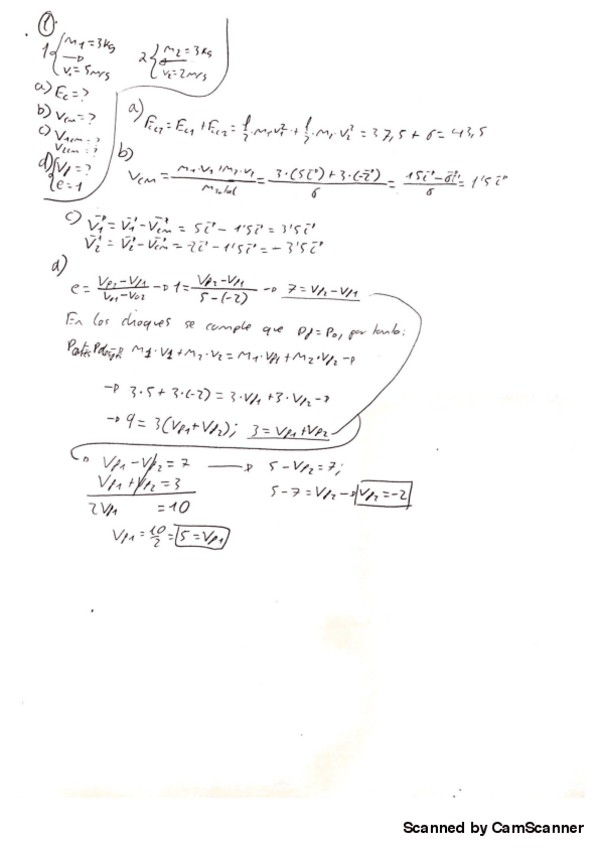 ①
1 { m1 = 3kg
v1 = 5m/s
2 { m2 = 3kg
v2 = 2m/s
a) Ec = ?
b) Vcm = ?
c) V1cm = ?
V2cm = ?
d) { Vf = ?
e = 1
a) EcT = Ec1 + Ec2 = 1/2 · m1 v1² + 1/2 · m2 v2² = 37,5 + 6 = 43,5
b)
Vcm = (m1·v1 + m2·v2)/m total = (3·(5i) + 3·(-2i))/6 = (15i - 6i)/6 = 1'5i
c) V1' = V1 - Vcm = 5i - 1'5i = 3'5i
V2' = V2 - Vcm = -2i - 1'5i = -3'5i
d)
e = (Vf2 - Vf1)/(V01 - V02) → 1 = (Vf2 - Vf1)/(5 - (-2)) → 7 = Vf2 - Vf1
En los choques se cumple que Pf = P0, por tanto:
m1·V1 + m2·V2 = m1·Vf1 + m2·Vf2 →
→ 3·5 + 3·(-2) = 3·Vf1 + 3·Vf2 →
→ 9 = 3(Vf1 + Vf2); 3 = Vf1 + Vf2
Vf1 - Vf2 = 7 → 5 - Vf2 = 7;
Vf1 + Vf2 = 3
5 - 7 = Vf2 → Vf2 = -2
2Vf1 = 10
Vf1 = 10/2 = 5 = Vf1
Scanned by CamScanner